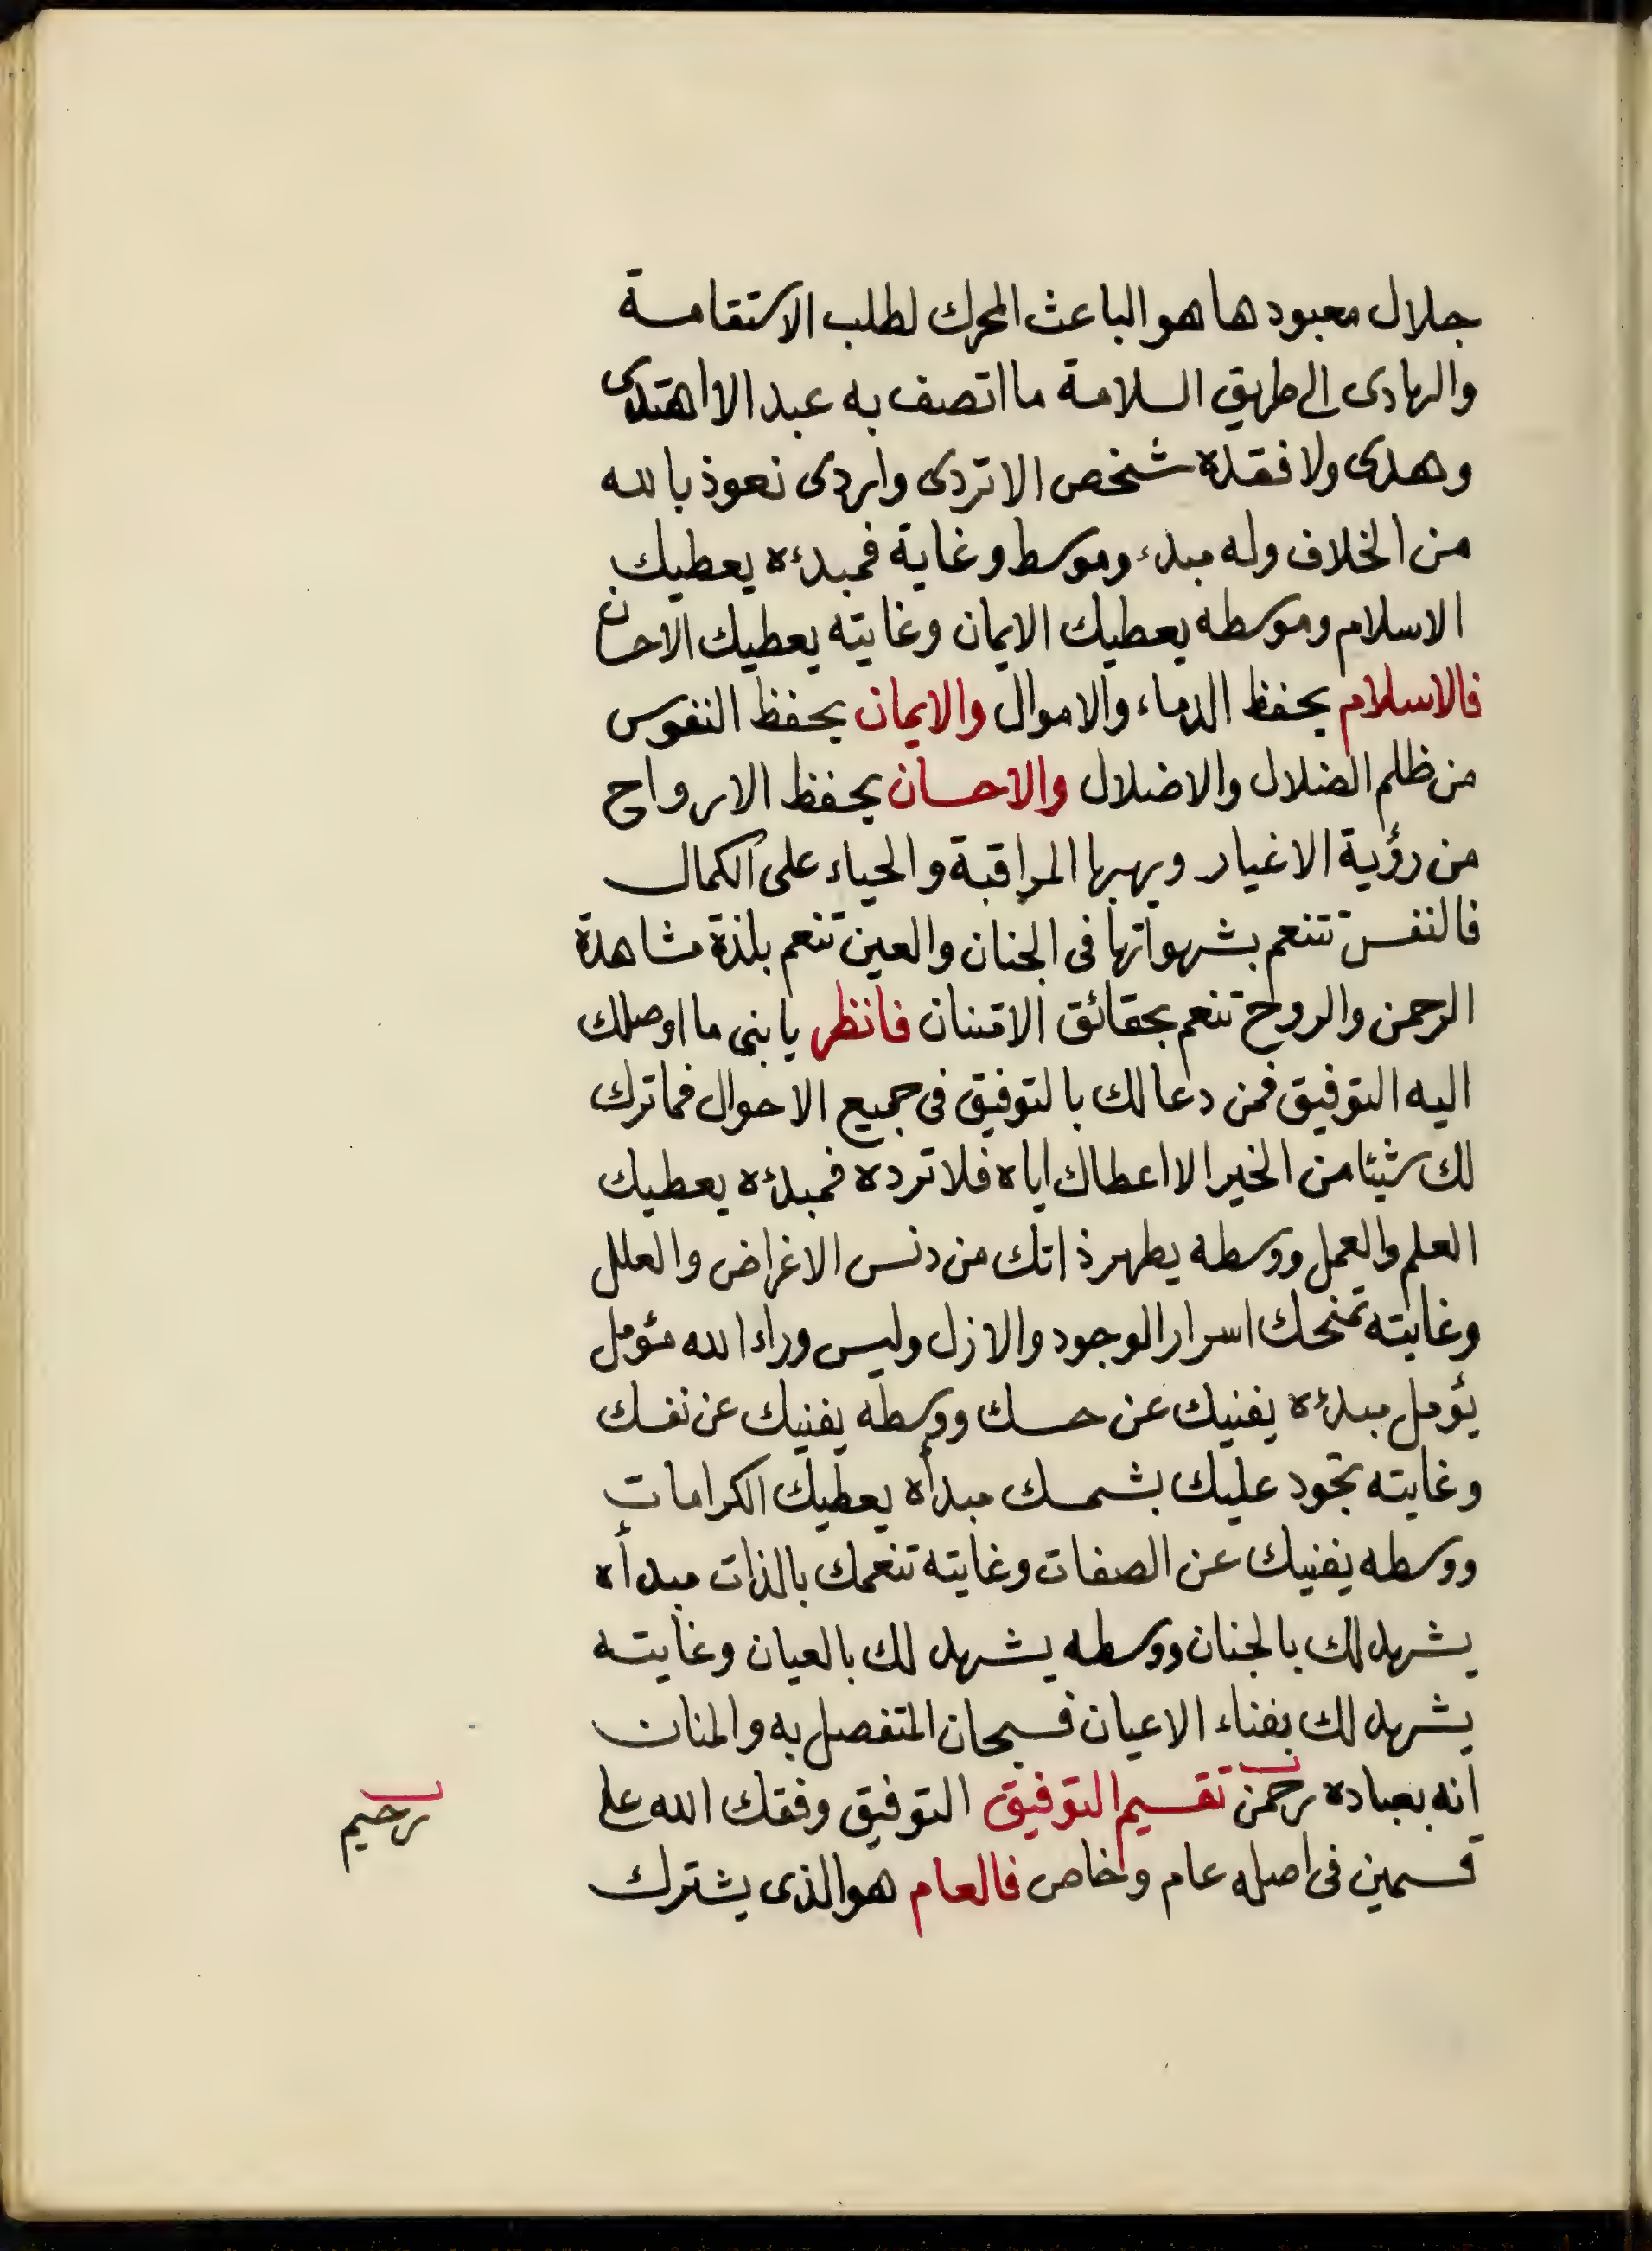 جلال معبودها هو الباعث المحرك لطلب الاستقامة
والهادى الى طريق السلامة ما اتصف به عبد الا اهتدى
وهدى ولا فقده شخص الا تردى واردى نعوذ بالله
من الخلاف وله مبدء وموسط وغاية فمبدؤه يعطيك
الاسلام وموسطه يعطيك الايمان وغايته يعطيك الاحسان
فالاسلام يحفظ الدماء والاموال والايمان يحفظ النفوس
من ظلم الضلال والاضلال والاحسان يحفظ الارواح
من رؤية الاغيار ويهبها المراقبة والحياء على الكمال
فالنفس تتنعم بشهواتها فى الجنان والعين تنعم بلذة مشاهدة
الرحمن والروح تنعم بحقائق الامتنان فانظر يا بنى ما اوصلك
اليه التوفيق فمن دعا لك بالتوفيق فى جميع الاحوال فما ترك
لك شيئا من الخير الا اعطاك اياه فلا ترده فمبدؤه يعطيك
العلم والعمل ووسطه يطهر ذاتك من دنس الاغراض والعلل
وغايته تمنحك اسرار الوجود والازل وليس وراء الله مؤمل
يؤمل مبدؤه يفنيك عن حسك ووسطه يفنيك عن نفسك
وغايته تجود عليك بشمسك مبدأه يعطيك الكرامات
ووسطه يفنيك عن الصفات وغايته تنعمك بالذات مبدأه
يشهد لك بالجنان ووسطه يشهد لك بالعيان وغايته
يشهد لك بفناء الاعيان فسبحان المتفصل به والمنان
انه بعباده رحمن تقسيم التوفيق التوفيق وفقك الله على
قسمين فى اصله عام وخاص فالعام هو الذى يشترك
رحيم